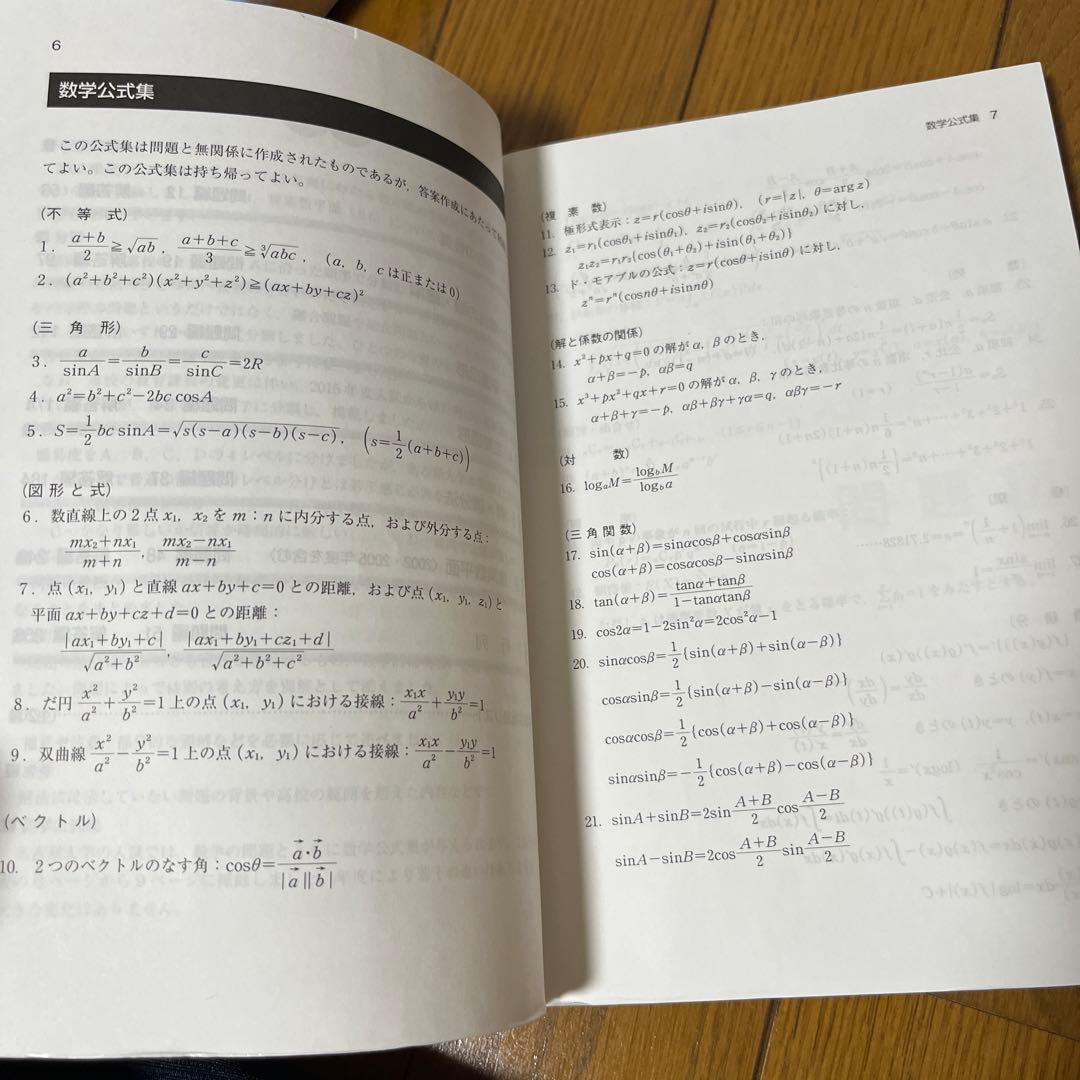 6
数学公式集
この公式集は問題と無関係に作成されたものであるが，答案作成にあたって
てよい。この公式集は持ち帰ってよい。
(不 等 式)
1. \frac{a+b}{2}≧√ab, \frac{a+b+c}{3}≧∛abc, (a, b, cは正または0)
2. (a²+b²+c²)(x²+y²+z²)≧(ax+by+cz)²
(三 角 形)
3. \frac{a}{sinA}=\frac{b}{sinB}=\frac{c}{sinC}=2R
4. a²=b²+c²−2bc cosA
5. S=\frac{1}{2}bc sinA=√s(s−a)(s−b)(s−c), (s=\frac{1}{2}(a+b+c))
(図形と式)
6. 数直線上の2点x₁, x₂をm:nに内分する点，および外分する点:
\frac{mx₂+nx₁}{m+n}, \frac{mx₂−nx₁}{m−n}
7. 点(x₁, y₁)と直線ax+by+c=0との距離，および点(x₁, y₁, z₁)と
平面ax+by+cz+d=0との距離:
\frac{|ax₁+by₁+c|}{√a²+b²}, \frac{|ax₁+by₁+cz₁+d|}{√a²+b²+c²}
8. だ円\frac{x²}{a²}+\frac{y²}{b²}=1上の点(x₁, y₁)における接線:\frac{x₁x}{a²}+\frac{y₁y}{b²}=1
9. 双曲線\frac{x²}{a²}−\frac{y²}{b²}=1上の点(x₁, y₁)における接線:\frac{x₁x}{a²}−\frac{y₁y}{b²}=1
(ベクトル)
10. 2つのベクトルのなす角:cosθ=\frac{\vec{a}·\vec{b}}{|\vec{a}||\vec{b}|}
数学公式集 7
(複 素 数)
11. 極形式表示:z=r(cosθ+isinθ), (r=|z|, θ=argz)
12. z₁=r₁(cosθ₁+isinθ₁), z₂=r₂(cosθ₂+isinθ₂)に対し,
z₁z₂=r₁r₂{cos(θ₁+θ₂)+isin(θ₁+θ₂)}
13. ド・モアブルの公式:z=r(cosθ+isinθ)に対し,
zⁿ=rⁿ(cosnθ+isinnθ)
(解と係数の関係)
14. x²+px+q=0の解がα, βのとき,
α+β=−p, αβ=q
15. x³+px²+qx+r=0の解がα, β, γのとき,
α+β+γ=−p, αβ+βγ+γα=q, αβγ=−r
(対 数)
16. logₐM=\frac{log_bM}{log_ba}
(三角関数)
17. sin(α+β)=sinαcosβ+cosαsinβ
cos(α+β)=cosαcosβ−sinαsinβ
18. tan(α+β)=\frac{tanα+tanβ}{1−tanαtanβ}
19. cos2α=1−2sin²α=2cos²α−1
20. sinαcosβ=\frac{1}{2}{sin(α+β)+sin(α−β)}
cosαsinβ=\frac{1}{2}{sin(α+β)−sin(α−β)}
cosαcosβ=\frac{1}{2}{cos(α+β)+cos(α−β)}
sinαsinβ=−\frac{1}{2}{cos(α+β)−cos(α−β)}
21. sinA+sinB=2sin\frac{A+B}{2}cos\frac{A−B}{2}
sinA−sinB=2cos\frac{A+B}{2}sin\frac{A−B}{2}